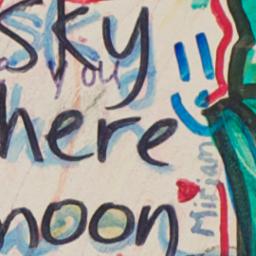 sky
you
here
noon
Miriam